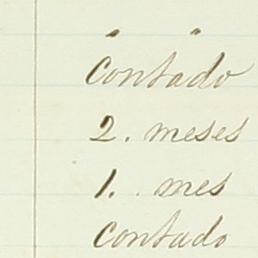 " "
Contado
2. meses
1. mes
Contado